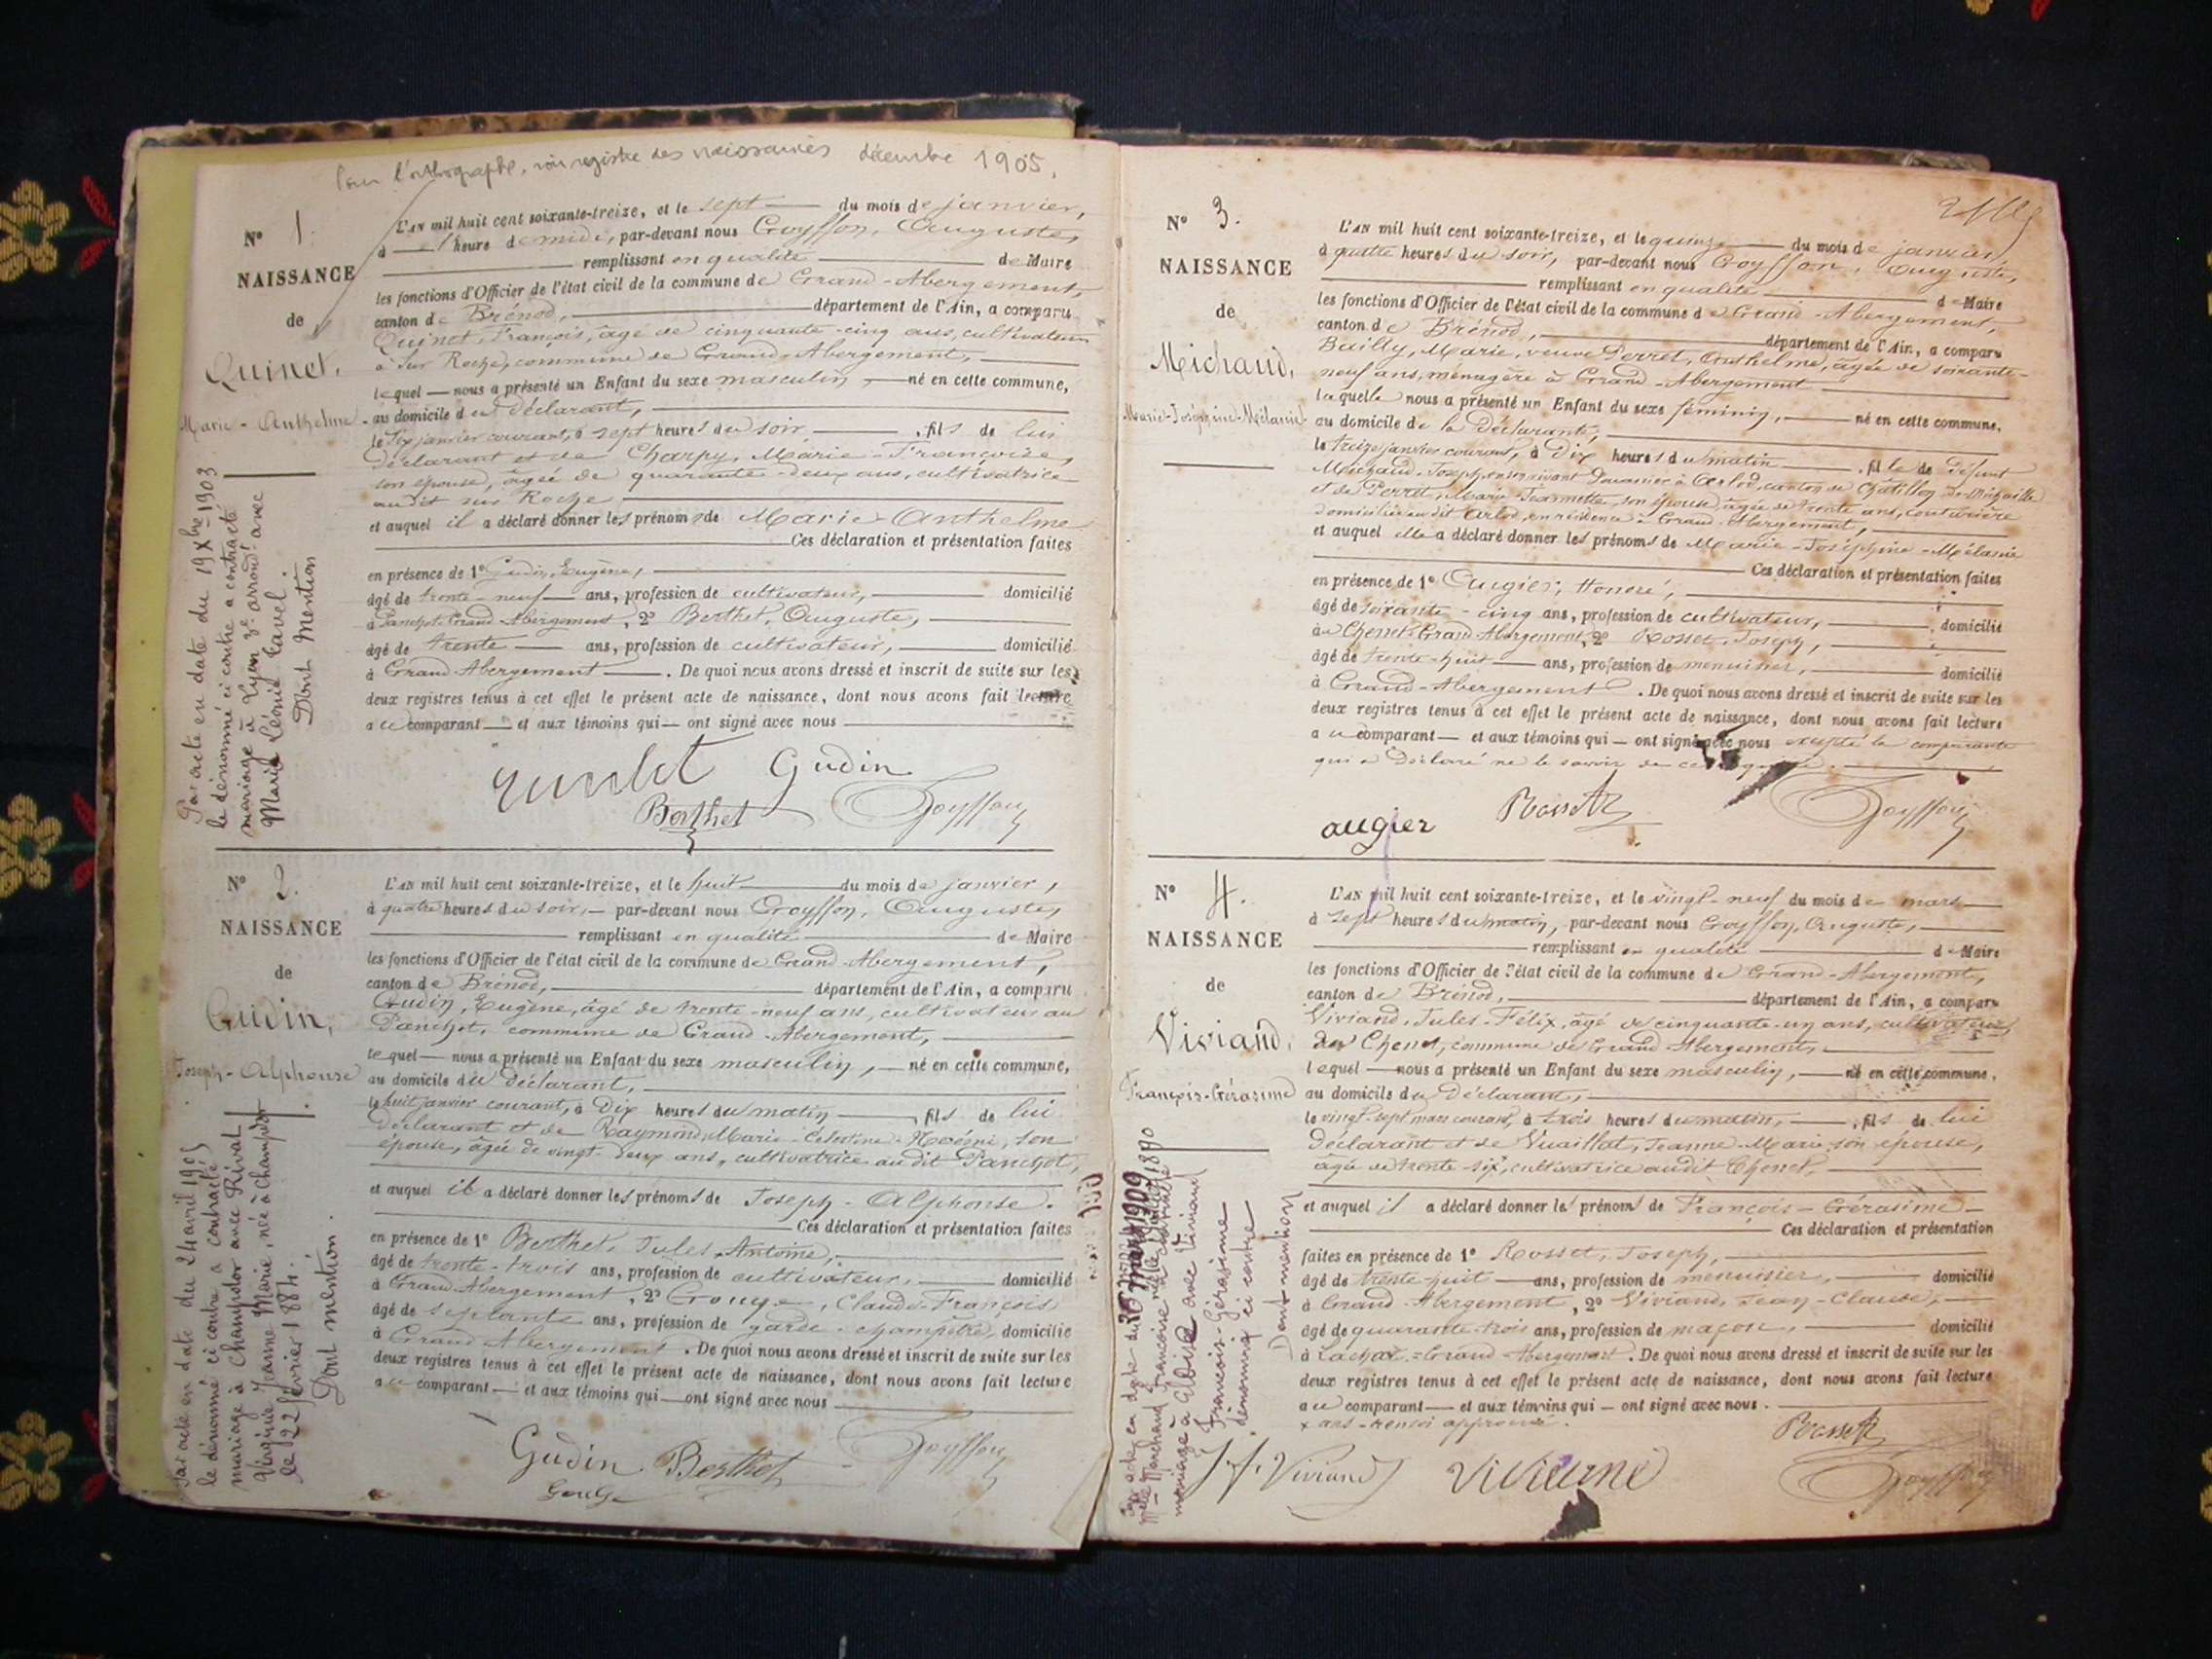 Pour l'orthographe, voir registre des naissances décembre 1905.
N° 1.
NAISSANCE
de
Quinet,
Marie-Anthelme
Par acte en date du 19 Xbre 1903
le dénommé ci contre a contracté
mariage à Lyon 3e arrondt avec
Marie Léonie Cavel.
Dont Mention
L'AN mil huit cent soixante-treize, et le sept du mois de janvier,
à l'heure de midi, par-devant nous Goyffon, Auguste,
remplissant en qualité de Maire
les fonctions d'Officier de l'état civil de la commune de Grand-Abergement,
canton de Brénod, département de l'Ain, a comparu
Quinet, François, âgé de cinquante-cinq ans, cultivateur
à Sur Roche, commune de Grand-Abergement,
lequel nous a présenté un Enfant du sexe masculin, né en cette commune,
au domicile du Déclarant,
le six janvier courant, à sept heures du soir, fils de lui
Déclarant et de Charpy, Marie-Françoise,
son épouse, âgée de quarante-deux ans, cultivatrice
audit sur Roche
et auquel il a déclaré donner les prénoms de Marie-Anthelme
Ces déclaration et présentation faites
en présence de 1° Gudin, Eugène,
âgé de trente-neuf ans, profession de cultivateur, domicilié
à Panchot-Grand-Abergement, 2° Berthet, Auguste,
âgé de trente ans, profession de cultivateur, domicilié
à Grand-Abergement. De quoi nous avons dressé et inscrit de suite sur les
deux registres tenus à cet effet le présent acte de naissance, dont nous avons fait lecture
au comparant et aux témoins qui ont signé avec nous
Gudin
Berthet Goyffon
N° 2.
NAISSANCE
de
Gudin,
Joseph-Alphonse
Par acte en date du 24 avril 1905
le dénommé ci contre a contracté
mariage à Champdor avec Rival
Virginie Jeanne Marie, née à Champdor
le 22 février 1884.
Dont mention.
L'AN mil huit cent soixante-treize, et le huit du mois de janvier,
à quatre heures du soir, par-devant nous Goyffon, Auguste,
remplissant en qualité de Maire
les fonctions d'Officier de l'état civil de la commune de Grand-Abergement,
canton de Brénod, département de l'Ain, a comparu
Gudin, Eugène, âgé de trente-neuf ans, cultivateur au
Panchot, commune de Grand-Abergement,
lequel nous a présenté un Enfant du sexe masculin, né en cette commune,
au domicile du Déclarant,
le huit janvier courant, à Dix heures du matin, fils de lui
Déclarant et de Raymond, Marie-Célestine, son
épouse, âgée de vingt-deux ans, cultivatrice au dit Panchot,
et auquel il a déclaré donner les prénoms de Joseph-Alphonse.
Ces déclaration et présentation faites
en présence de 1° Berthet, Jules-Antoine,
âgé de trente-trois ans, profession de cultivateur, domicilié
à Grand-Abergement, 2° Gouge, Claude-François
âgé de septante ans, profession de garde-champêtre, domicilié
à Grand-Abergement. De quoi nous avons dressé et inscrit de suite sur les
deux registres tenus à cet effet le présent acte de naissance, dont nous avons fait lecture
au comparant et aux témoins qui ont signé avec nous
Gudin Berthet Goyffon
Gouge
N° 3.
NAISSANCE
de
Michaud,
Marie-Joséphine-Mélanie
L'AN mil huit cent soixante-treize, et le quinze du mois de janvier,
à quatre heures du soir, par-devant nous Goyffon, Auguste,
remplissant en qualité de Maire
les fonctions d'Officier de l'état civil de la commune de Grand-Abergement,
canton de Brénod, département de l'Ain, a comparu
Bailly, Marie, veuve Perret, Anthelme, âgée de soixante-
neuf ans, ménagère à Grand-Abergement
laquelle nous a présenté un Enfant du sexe féminin, né en cette commune,
au domicile de la Déclarante,
le treize janvier courant, à Dix heures du matin, fille de défunt
Michaud, Joseph, en son vivant Douanier à Arlod, canton de Châtillon-de-Michaille
et de Perret, Marie-Jeannette, son épouse, âgée de trente ans, couturière
domiciliée au dit Arlod, en résidence à Grand-Abergement,
et auquel elle a déclaré donner les prénoms de Marie-Joséphine-Mélanie
Ces déclaration et présentation faites
en présence de 1° Augier, Honoré,
âgé de soixante-cinq ans, profession de cultivateur, domicilié
au Chenet-Grand-Abergement, 2° Rosset, Joseph,
âgé de trente-huit ans, profession de menuisier, domicilié
à Grand-Abergement. De quoi nous avons dressé et inscrit de suite sur les
deux registres tenus à cet effet le présent acte de naissance, dont nous avons fait lecture
au comparant et aux témoins qui ont signé avec nous excepté la comparante
qui a Déclaré ne le savoir de ce
augier Rosset Goyffon
N° 4.
NAISSANCE
de
Viviand,
François-Gérasime
Par acte en date du 30 Mars 1909
mariage à avec Viviand
François-Gérasime
dénommé ci contre
Dont mention
L'AN mil huit cent soixante-treize, et le vingt-neuf du mois de mars
à sept heures du matin, par-devant nous Goyffon, Auguste,
remplissant en qualité de Maire
les fonctions d'Officier de l'état civil de la commune de Grand-Abergement,
canton de Brénod, département de l'Ain, a comparu
Viviand, Jules-Félix, âgé de cinquante-un ans, cultivateur
au Chenet, commune de Grand-Abergement,
lequel nous a présenté un Enfant du sexe masculin, né en cette commune,
au domicile du Déclarant,
le vingt-sept mars courant, à trois heures du matin, fils de lui
Déclarant et de Vuaillat, Jeanne-Marie, son épouse,
âgée de trente-six, cultivatrice audit Chenet,
et auquel il a déclaré donner les prénoms de François-Gérasime
Ces déclaration et présentation
faites en présence de 1° Rosset, Joseph,
âgé de trente-huit ans, profession de menuisier, domicilié
à Grand-Abergement, 2° Viviand, Jean-Claude,
âgé de quarante-trois ans, profession de maçon, domicilié
à Lachat-Grand-Abergement. De quoi nous avons dressé et inscrit de suite sur les
deux registres tenus à cet effet le présent acte de naissance, dont nous avons fait lecture
au comparant et aux témoins qui ont signé avec nous.
x ans-renvoi approuvé.
Rosset
J. f. Viviand Goyffon